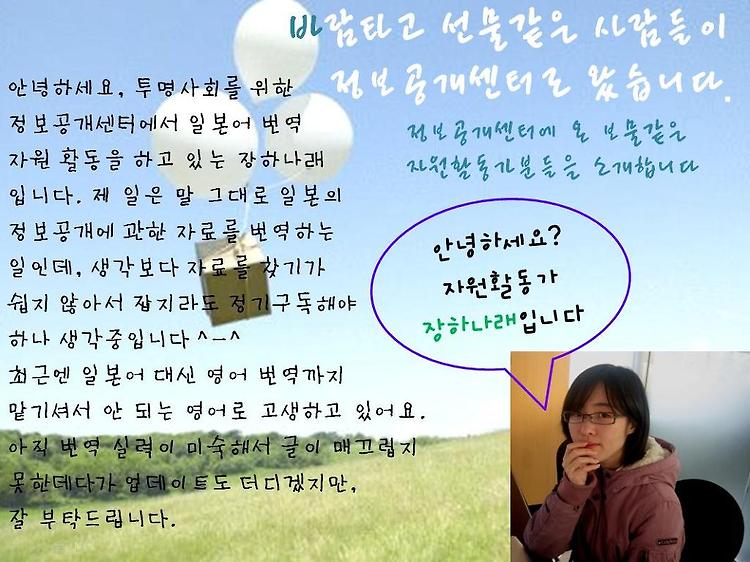 바람타고 선물같은 사람들이
정보공개센터로 왔습니다.
정보공개센터에 온 보물같은
자원활동가분들을 소개합니다
안녕하세요, 투명사회를 위한
정보공개센터에서 일본어 번역
자원 활동을 하고 있는 장하나래
입니다. 제 일은 말 그대로 일본의
정보공개에 관한 자료를 번역하는
일인데, 생각보다 자료를 찾기가
쉽지 않아서 잡지라도 정기구독해야
하나 생각중입니다 ^-^
최근엔 일본어 대신 영어 번역까지
맡기셔서 안 되는 영어로 고생하고 있어요.
아직 번역 실력이 미숙해서 글이 매끄럽지
못한데다가 업데이트도 더디겠지만,
잘 부탁드립니다.
안녕하세요?
자원활동가
장하나래입니다